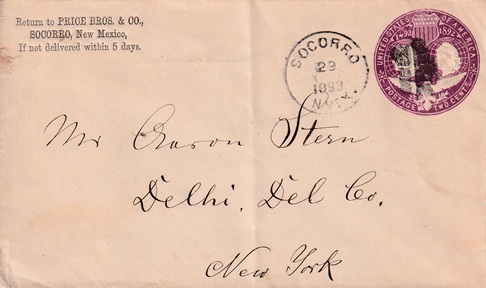 Return to PRICE BROS. & CO.,
SOCORRO, New Mexico,
If not delivered within 5 days.
SOCORRO
29
1893
UNITED STATES OF AMERICA
1492 1892
POSTAGE TWO CENTS
Mr Aaron Stern
Delhi. Del Co.
New York